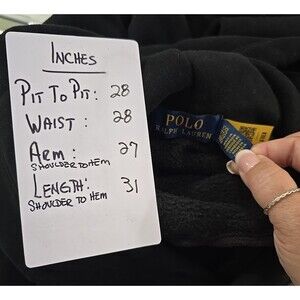 INCHES
PIT TO PIT: 28
WAIST: 28
ARM: 27
SHOULDER TO HEM
LENGTH: 31
SHOULDER TO HEM
POLO
RALPH LAUREN